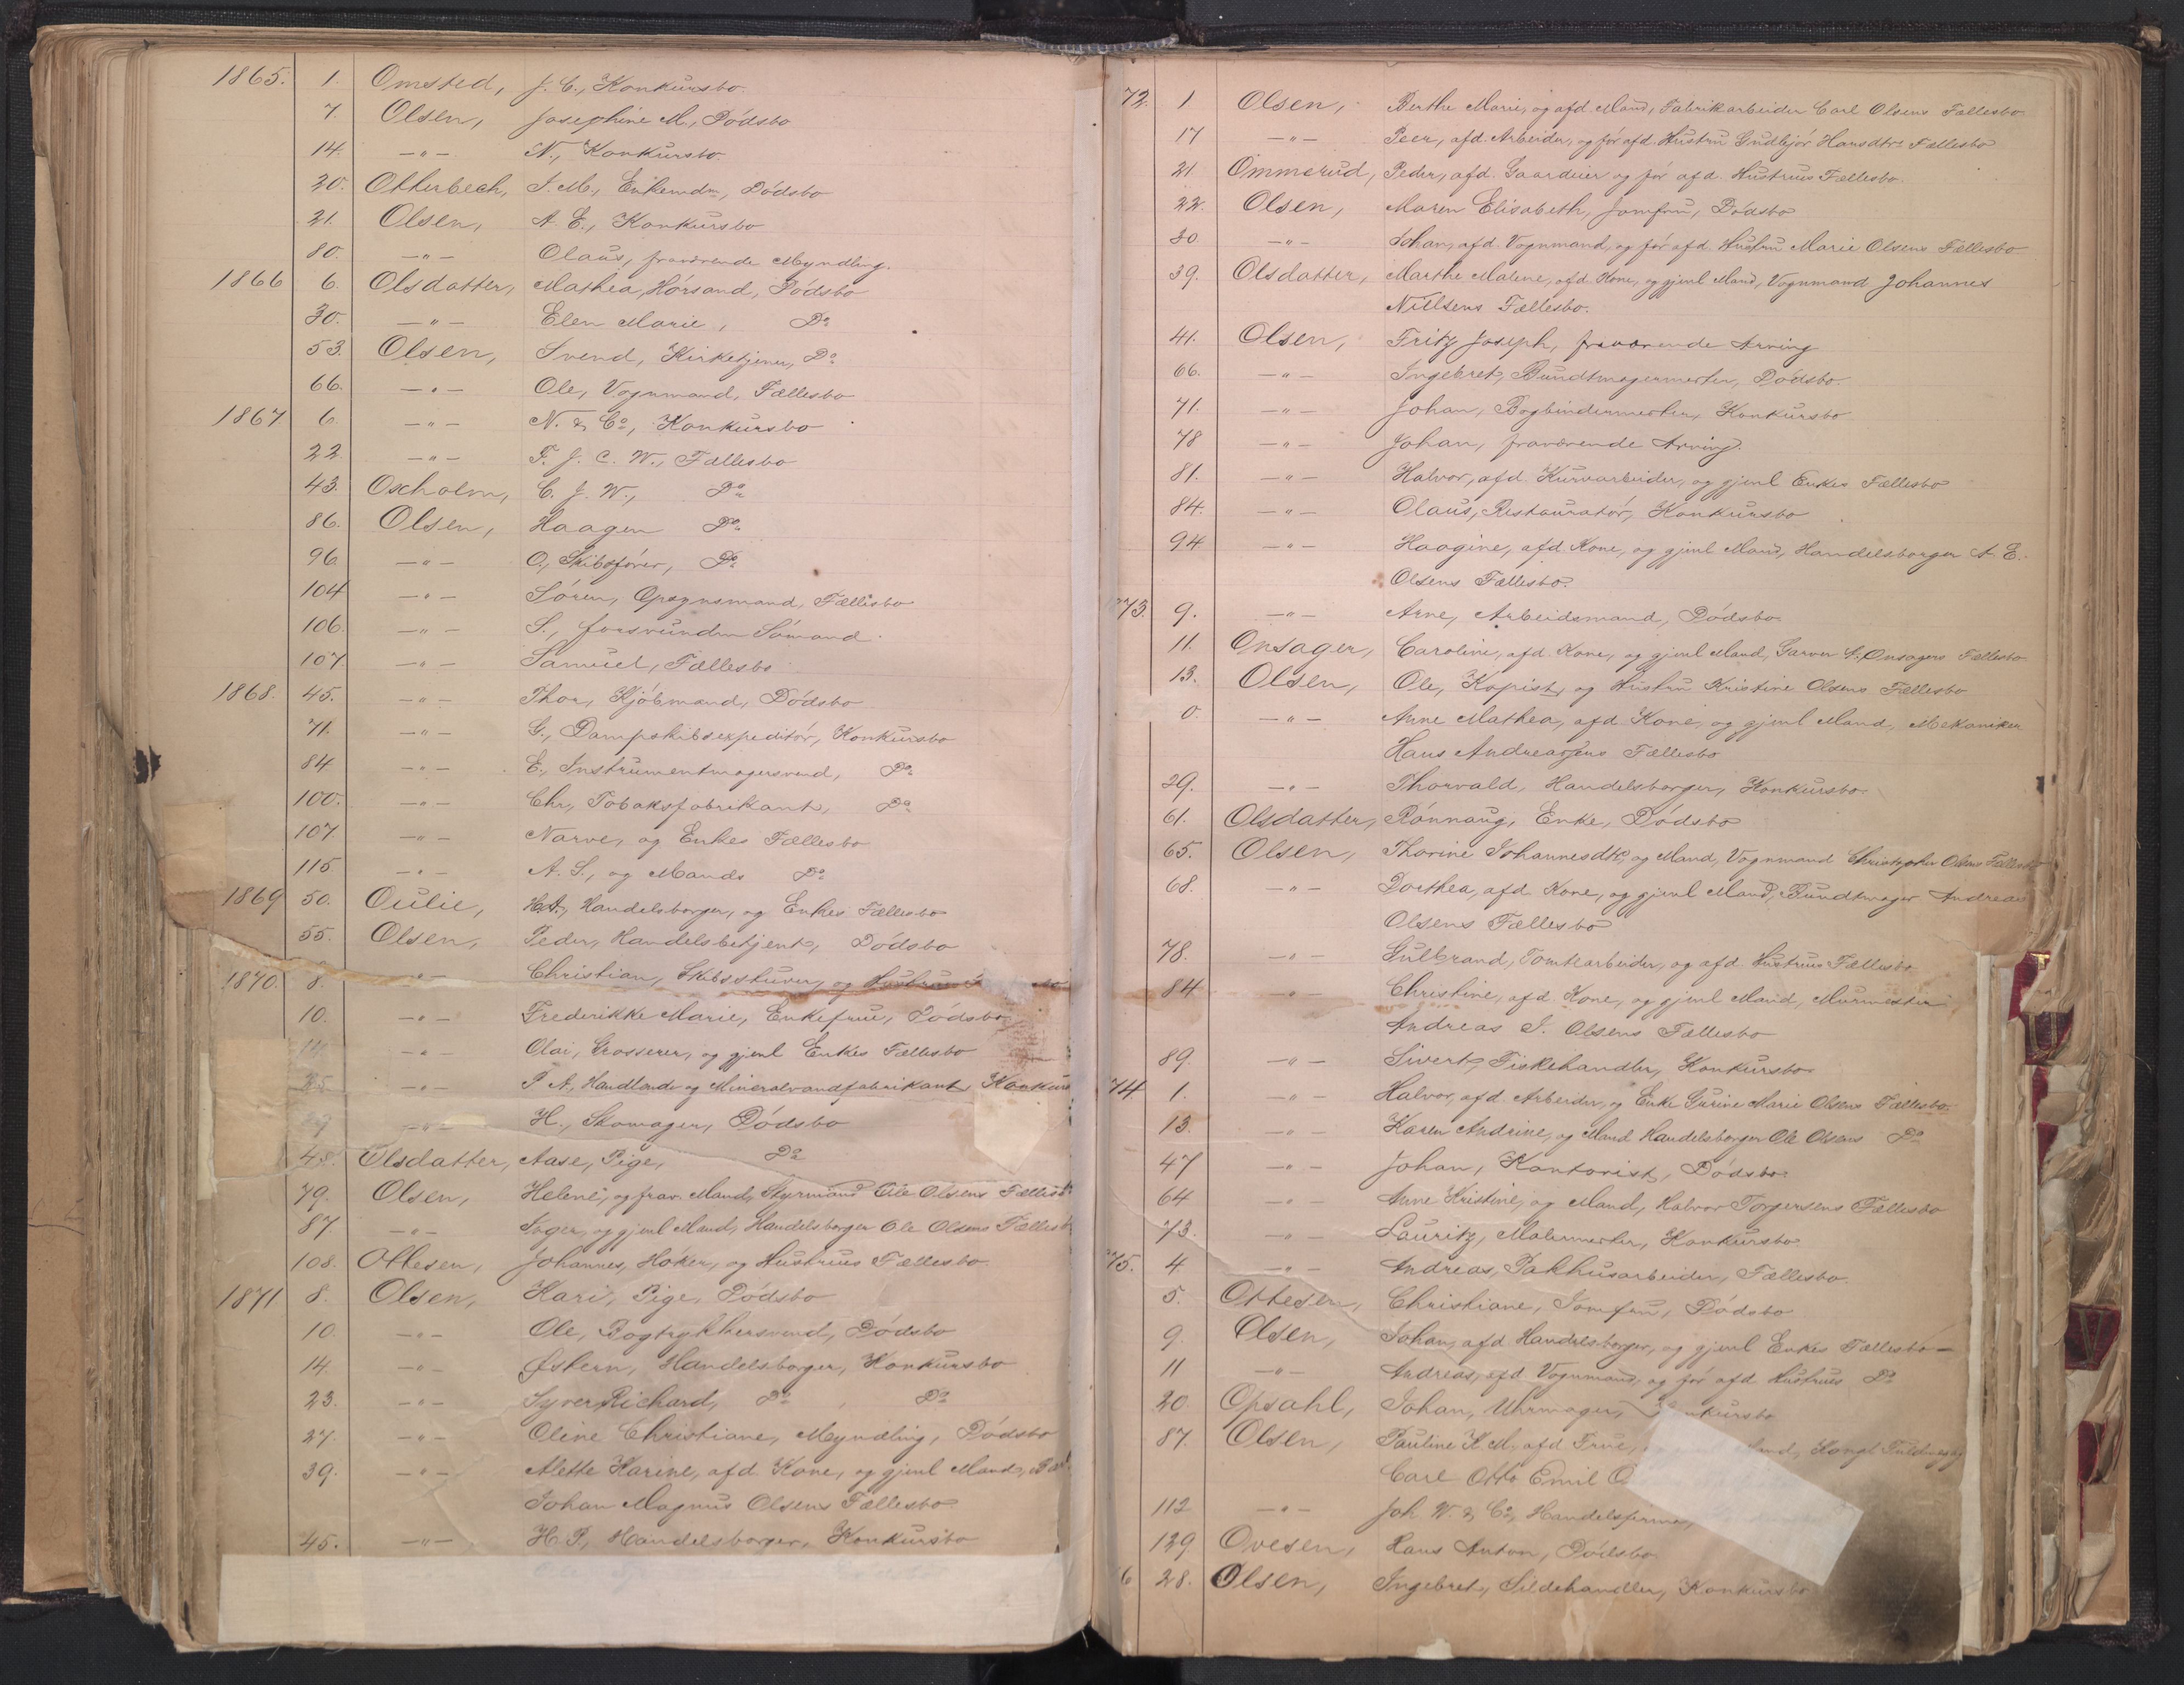 1865. 1. Omsted, J. C., Konkursbo.
7. Olsen, Josephine M., Dödsbo
14. —"— N., Konkursbo.
20. Otterbech, J. M., Enkemdn, Dödsbo
21. Olsen, A. E., Konkursbo
80. —"— Olaus, fraværende Myndling.
1866 6. Olsdatter, Mathea, Hörsand, Dödsbo
30. —"— Elen Marie, Do
53. Olsen, Svend, Kirketjener, Do
66. —"— Ole, Vognmand, Fællesbo
1867. 6. —"— N. & Co, Konkursbo
22 —"— F. J. C. W., Fællesbo
43. Oxholm, C. J. W., Do
86. Olsen, Haagen Do
96. —"— O., Skibsförer, Do
104 —"— Sören, Opsynsmand, Fællesbo
106. —"— S., forsvunden Sömand.
107. —"— Samuel, Fællesbo
1868. 45. —"— Thor, Kjöbmand, Dödsbo
71. —"— G., Dampskibsexpeditör, Konkursbo
84 —"— E., Instrumentmagersvend, Do
100. —"— Chr., Tobaksfabrikant, Do
107. —"— Narve, og Enkes Fællesbo
115. —"— A. S., og Mands Do
1869 50. Oulie, H.A., Handelsborger, og Enkes Fællesbo
55. Olsen, Peder, Handelsbetjent, Dödsbo
1870. 8. —"— Christian, Skibsstuver, og Hustrus
10. —"— Frederikke Marie, Enkefrue, Dödsbo
14. —"— Olai, Grosserer, og gjenl Enkes Fællesbo
25. —"— P A., Handlende og Mineralvandfabrikant, Konkurs
29 —"— H., Skomager, Dödsbo
48. Olsdatter, Aase, Pige, Do
79. Olsen, Helene, og frav. Mand, Styrmand Ole Olsens Fællesb
87. —"— Inger, og gjenl Mand, Handelsborger Ole Olsens Fællesb
108. Ottesen, Johannes, Höker, og Hustrus Fællesbo
1871 8. Olsen, Kari, Pige, Dödsbo
10. —"— Ole, Bogtrykkersvend, Dödsbo
14. —"— Østern, Handelsborger, Konkursbo
23. —"— Syver Richard, Do, Do
27. —"— Oline Christiane, Myndling, Dödsbo
39. —"— Alette Karine, afd. Kone, og gjenl Mand,
Johan Magnus Olsens Fællesbo
45. —"— H. P., Handelsborger, Konkursbo
72. 1 Olsen, Berthe Marie, og afd. Mand, Fabrikarbeider Carl Olsens Fællesbo
17 —"— Peer, afd. Arbeider, og för afd. Hustru Gudbjör Hansdtrs Fællesbo
21. Ommerud, Peder, afd. Gaardeier og för afd. Hustrus Fællesbo.
22. Olsen, Maren Elisabeth, Jomfru, Dödsbo
30 —"— Johan, afd. Vognmand, og för afd. Hustru Marie Olsens Fællesbo
39. Olsdatter, Marthe Malene, afd. Kone, og gjenl Mand, Vognmand Johannes
Nielsens Fællesbo.
41. Olsen, Fritz Joseph, fraværende Arving
66. —"— Ingebret, Bundtmagermester, Dödsbo.
71. —"— Johan, Bogbindermester, Konkursbo
78 —"— Johan, fraværende Arving.
81. —"— Halvor, afd. Kurvarbeider, og gjenl Enkes Fællesbo
84. —"— Olaus, Restauratör, Konkursbo
94 —"— Haagine, afd. Kone, og gjenl Mand, Handelsborger A. E.
Olsens Fællesbo.
73. 9. —"— Arne, Arbeidsmand, Dödsbo.
11. Onsager, Caroline, afd. Kone, og gjenl Mand, Garver S. Onsagers Fællesbo
13. Olsen, Ole, Kopist, og Hustru Kristine Olsens Fællesbo
0. —"— Anne Mathea, afd Kone, og gjenl Mand, Mekaniker
Hans Andreasens Fællesbo
29. —"— Thorvald, Handelsborger, Konkursbo.
61. Olsdatter, Rönnaug, Enke, Dödsbo
65. Olsen, Thorine Johannesdtr, og Mand, Vognmand Christopher Olsens Fællesbo
68. —"— Dorthea, afd Kone, og gjenl Mand, Bundtmager Andreas
Olsens Fællesbo
78. —"— Gulbrand, Tomtearbeider, og afd. Hustrus Fællesbo
84 —"— Christine, afd. Kone, og gjenl Mand, Murmester
Andreas J. Olsens Fællesbo
89. —"— Sivert, Fiskehandler, Konkursbo
74 1. —"— Halvor, afd. Arbeider, og Enke Gurine Marie Olsens Fællesbo.
13. —"— Karen Andrine, og Mand Handelsborger Ole Olsens Do
47 —"— Johan, Kontorist, Dödsbo.
64 —"— Anne Kristine, og Mand, Halvor Torgersens Fællesbo
73. —"— Lauritz, Malermester, Konkursbo
75. 4 —"— Andreas, Pakhusarbeider, Fællesbo.
5. Ottesen, Christiane, Jomfru, Dödsbo
9. Olsen, Johan, afd Handelsborger, og gjenl Enkes Fællesbo—
11 —"— Andreas, afd Vognmand, og för afd Hustrues Do
20 Opsahl, Johan, Uhrmager, Konkursbo
87. Olsen, Pauline K. M., afd Frue,
Carl Otto Emil O
112 —"— Joh W. & Co, Handelsfirma,
129. Ovesen, Hans Anton, Dödsbo
6 28. Olsen, Ingebret, Sildehandler, Konkursbo